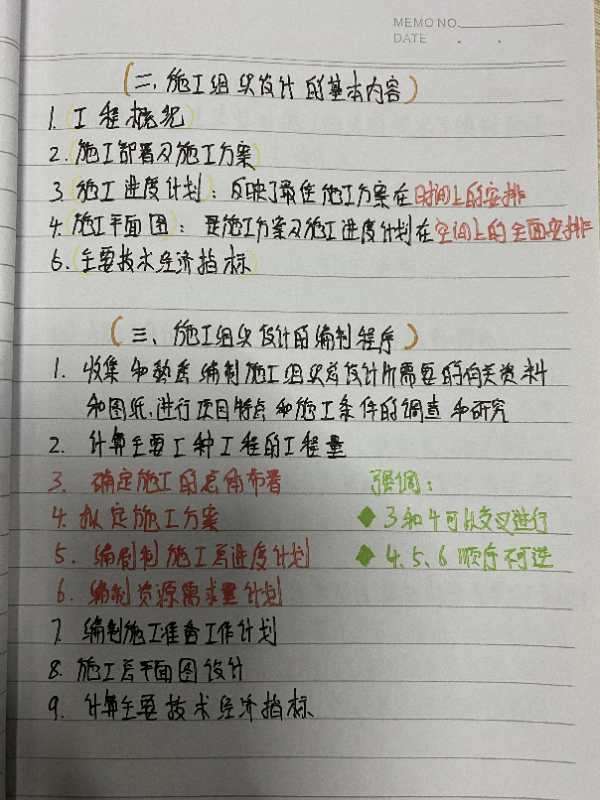 MEMO NO.
DATE . .
(二、施工组织设计的基本内容)
1. 工程概况
2. 施工部署及施工方案
3. 施工进度计划：反映了最佳施工方案在时间上的安排
4. 施工平面图：是施工方案及施工进度计划在空间上的全面安排
6. 主要技术经济指标
(三、施工组织设计的编制程序)
1. 收集和熟悉编制施工组织总设计所需要的有关资料
和图纸,进行项目特点和施工条件的调查和研究
2. 计算主要工种工程的工程量
3. 确定施工的总体布署 强调：
4. 拟定施工方案 ◆ 3和4可以交叉进行
5. 编制施工总进度计划 ◆ 4、5、6顺序不可逆
6. 编制资源需求量计划
7. 编制施工准备工作计划
8. 施工总平面图设计
9. 计算主要技术经济指标